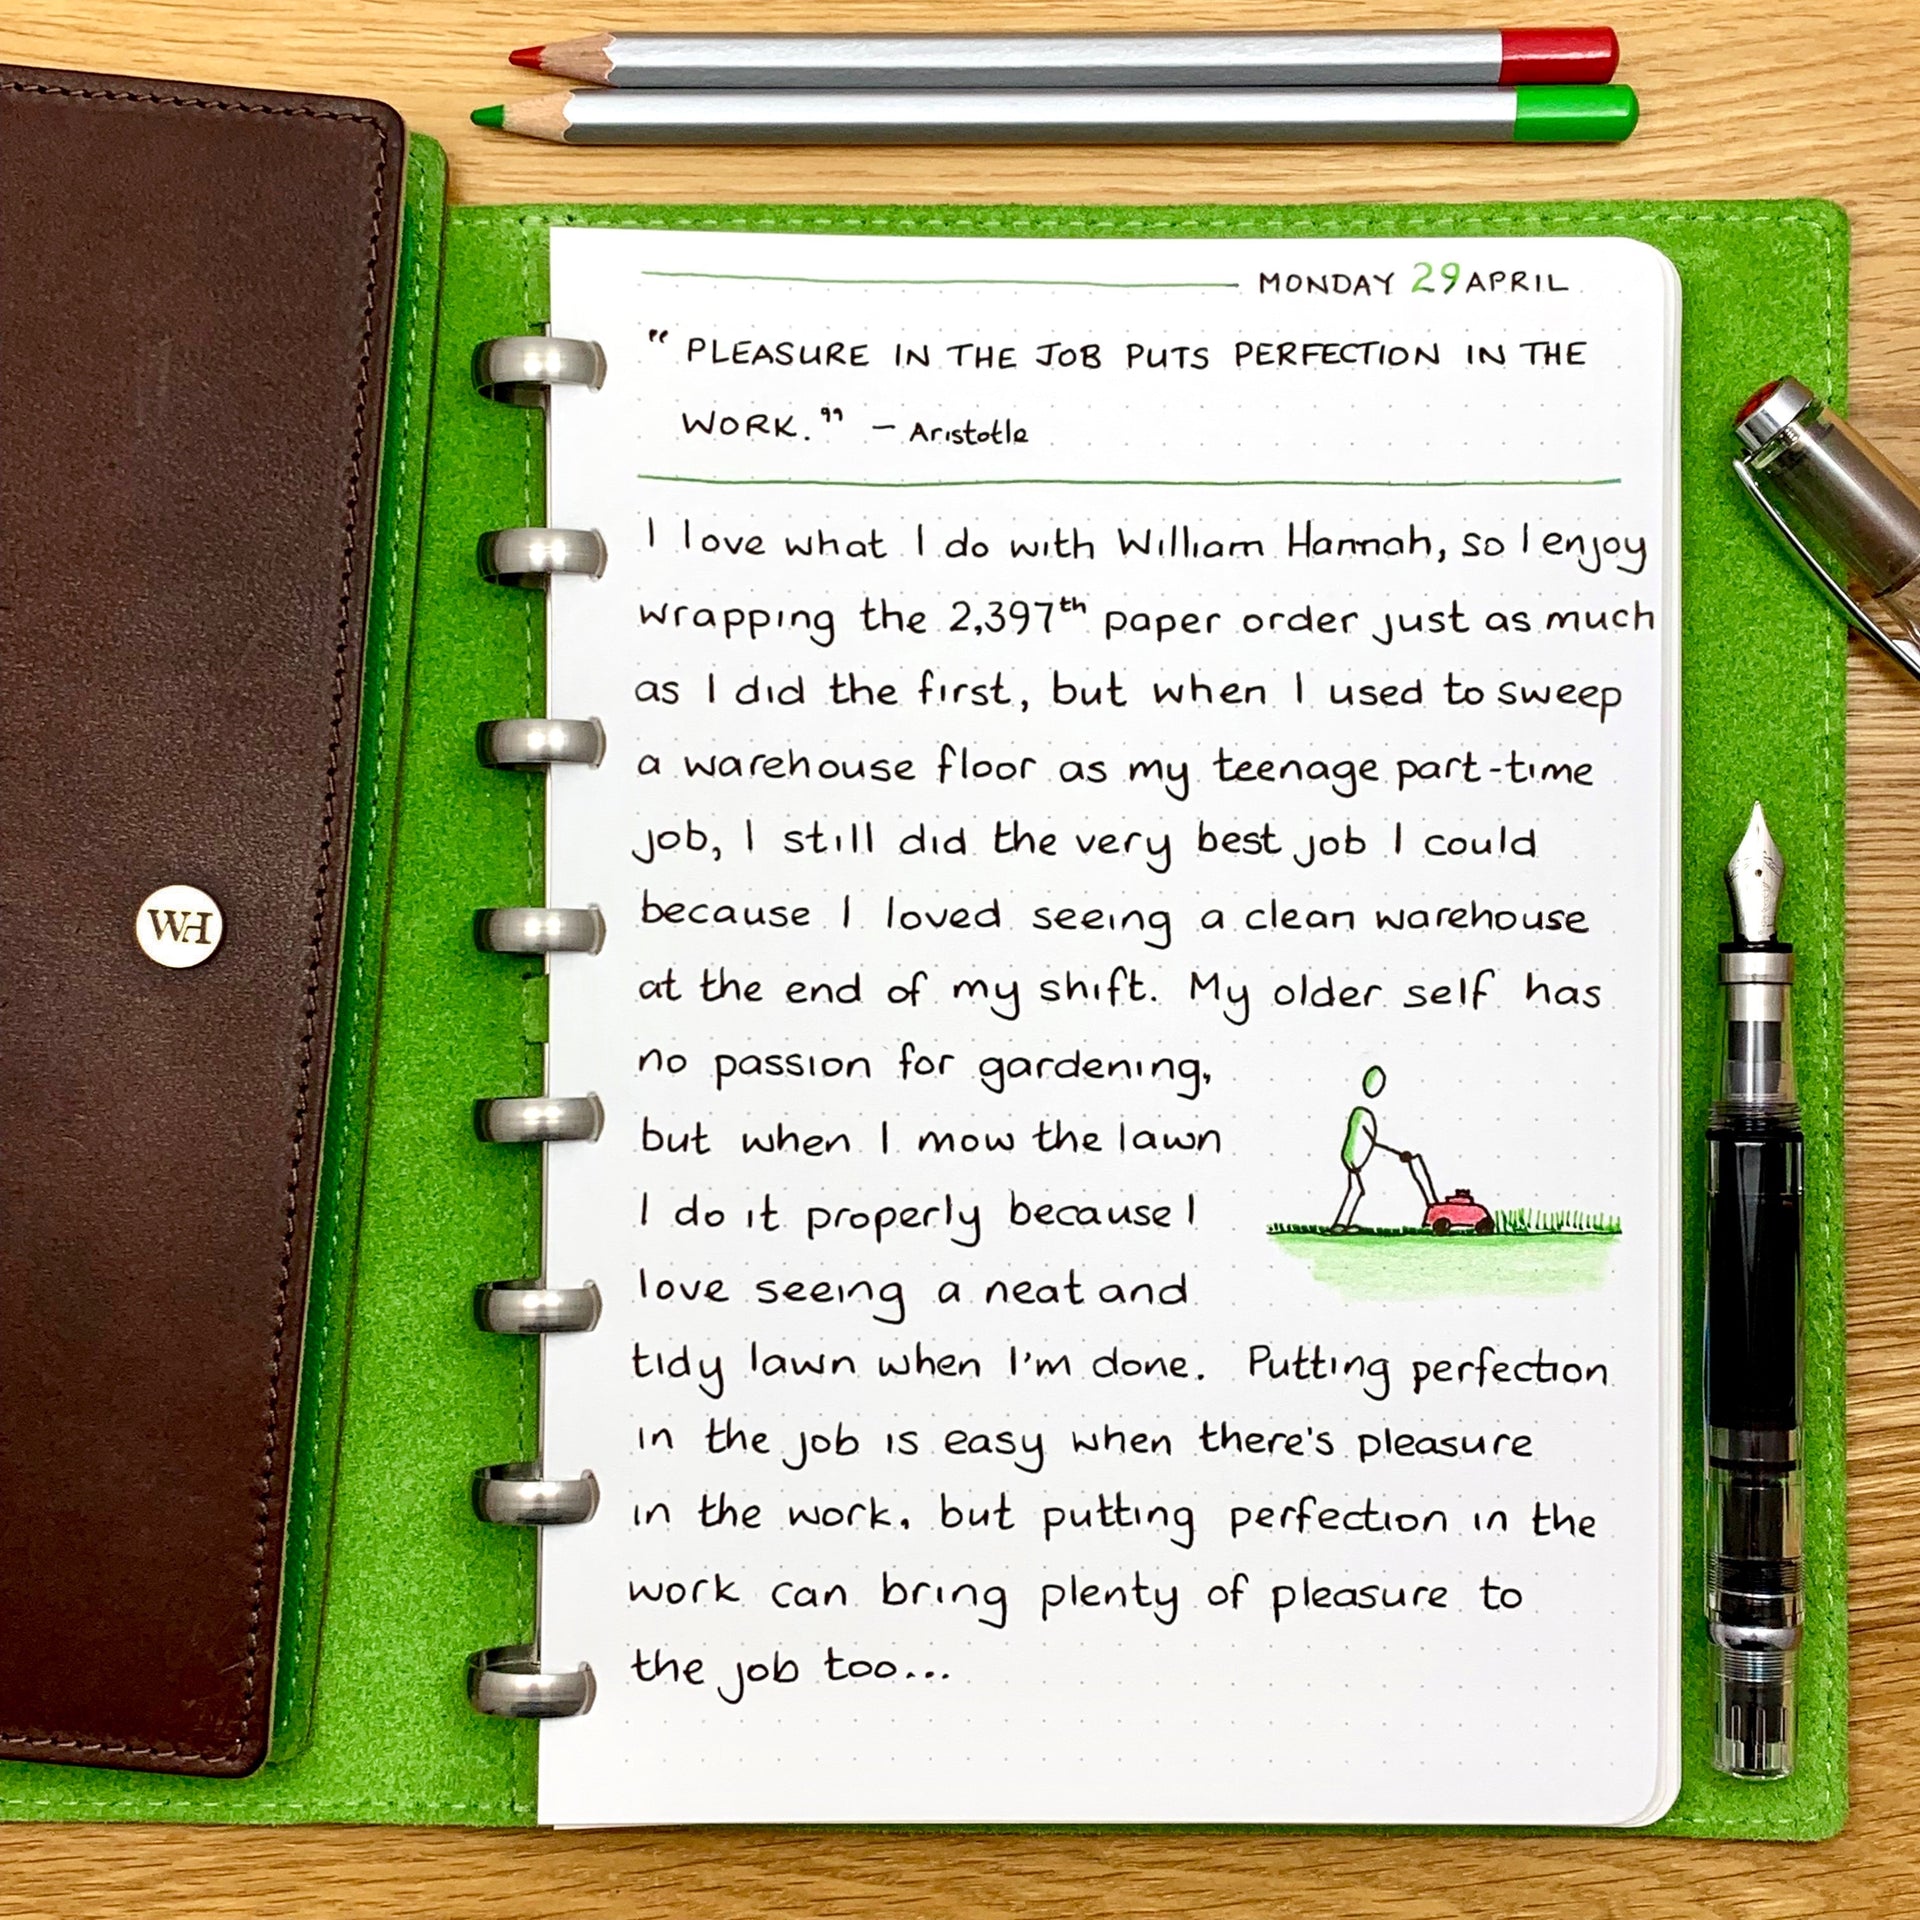 MONDAY 29 APRIL
“ PLEASURE IN THE JOB PUTS PERFECTION IN THE
WORK.” – Aristotle
I love what I do with William Hannah, so I enjoy
wrapping the 2,397th paper order just as much
as I did the first, but when I used to sweep
a warehouse floor as my teenage part-time
job, I still did the very best job I could
because I loved seeing a clean warehouse
at the end of my shift. My older self has
no passion for gardening,
but when I mow the lawn
I do it properly because I
love seeing a neat and
tidy lawn when I'm done. Putting perfection
in the job is easy when there's pleasure
in the work, but putting perfection in the
work can bring plenty of pleasure to
the job too...
WH